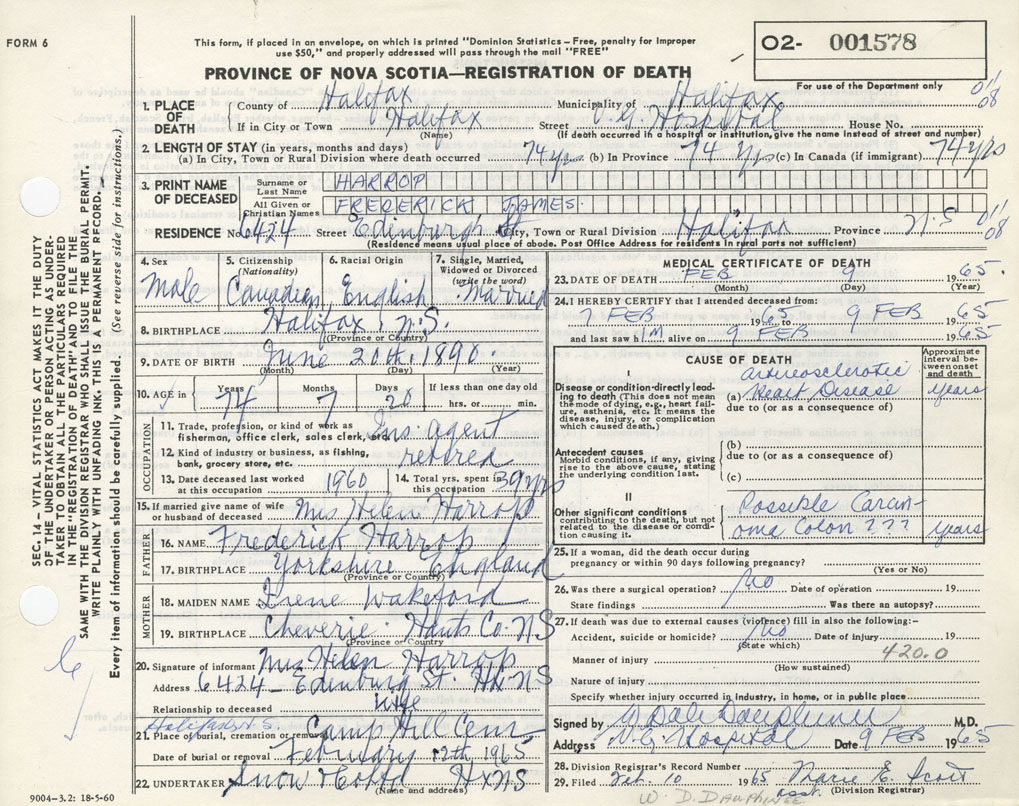 FORM 6
This form, if placed in an envelope, on which is printed "Dominion Statistics—Free, penalty for improper
use $50," and properly addressed will pass through the mail "FREE"
PROVINCE OF NOVA SCOTIA—REGISTRATION OF DEATH
O2- 001578
For use of the Department only
1. PLACE OF DEATH County of Halifax Municipality of Halifax 01/08
If in City or Town Halifax Street V.G. Hospital House No.
(Name) (If death occurred in a hospital or institution, give the name instead of street and number)
2. LENGTH OF STAY (in years, months and days)
(a) In City, Town or Rural Division where death occurred 74 yrs (b) In Province 74 yrs (c) In Canada (if immigrant) 74 yrs
3. PRINT NAME OF DECEASED Surname or Last Name HARROP
All Given or Christian Names FREDERICK JAMES
RESIDENCE No. 6424 Street Edinburgh St. City, Town or Rural Division Halifax Province N.S 01/08
(Residence means usual place of abode. Post Office Address for residents in rural parts not sufficient)
4. Sex Male
5. Citizenship (Nationality) Canadian
6. Racial Origin English
7. Single, Married, Widowed or Divorced (write the word) Married
8. BIRTHPLACE Halifax, N.S.
(Province or Country)
9. DATE OF BIRTH June 20th 1890
(Month) (Day) (Year)
10. AGE in Years 74 Months 7 Days 20 If less than one day old hrs. or min.
OCCUPATION
11. Trade, profession, or kind of work as fisherman, office clerk, sales clerk, etc. Ins. agent
12. Kind of industry or business, as fishing, bank, grocery store, etc. retired
13. Date deceased last worked at this occupation 1960
14. Total yrs. spent in this occupation 39 yrs
15. If married give name of wife or husband of deceased Mrs Helen Harrop
FATHER
16. NAME Frederick Harrop
17. BIRTHPLACE Yorkshire England
(Province or Country)
MOTHER
18. MAIDEN NAME Irene Wakeford
19. BIRTHPLACE Cheverie Hants Co. NS
(Province or Country)
20. Signature of informant Mrs Helen Harrop
Address 6424 - Edinburg St. Hx NS
Relationship to deceased wife
Halifax N.S.
21. Place of burial, cremation or removal Camp Hill Cem
Date of burial or removal February 12th, 1965
22. UNDERTAKER Snow Co Ltd Hx NS
(Name and address)
9004-3.2: 18-5-60
MEDICAL CERTIFICATE OF DEATH
23. DATE OF DEATH FEB 9 1965.
(Month) (Day) (Year)
24. I HEREBY CERTIFY that I attended deceased from:
7 FEB 1965 to 9 FEB 1965
and last saw h IM alive on 9 FEB 1965
CAUSE OF DEATH
Approximate interval between onset and death
I
Disease or condition directly leading to death (This does not mean the mode of dying, e.g., heart failure, asthenia, etc. It means the disease, injury, or complication which caused death.)
(a) Arteriosclerotic Heart Disease years
due to (or as a consequence of)
Antecedent causes
Morbid conditions, if any, giving rise to the above cause, stating the underlying condition last.
(b)
due to (or as a consequence of)
(c)
II
Other significant conditions contributing to the death, but not related to the disease or condition causing it.
Possible Carcin-
oma Colon ??? years
25. If a woman, did the death occur during
pregnancy or within 90 days following pregnancy?
(Yes or No)
26. Was there a surgical operation? No Date of operation 19
State findings Was there an autopsy?
27. If death was due to external causes (violence) fill in also the following:—
Accident, suicide or homicide? No Date of injury 19
(State which)
Manner of injury 420.0
(How sustained)
Nature of injury
Specify whether injury occurred in industry, in home, or in public place
Signed by W Dale Dauphinee M.D.
Address V.G. Hospital Date 9 FEB 1965
28. Division Registrar's Record Number
29. Filed Feb. 10 1965 Marie E. Scott
asst. (Division Registrar)
W. D. DAUPHINEE
SEC. 14—VITAL STATISTICS ACT MAKES IT THE DUTY
OF THE UNDERTAKER OR PERSON ACTING AS UNDER-
TAKER TO OBTAIN ALL THE PARTICULARS REQUIRED
IN THE "REGISTRATION OF DEATH" AND TO FILE THE
SAME WITH THE DIVISION REGISTRAR WHO SHALL ISSUE THE BURIAL PERMIT.
WRITE PLAINLY WITH UNFADING INK. THIS IS A PERMANENT RECORD.
Every item of information should be carefully supplied. (See reverse side for instructions.)